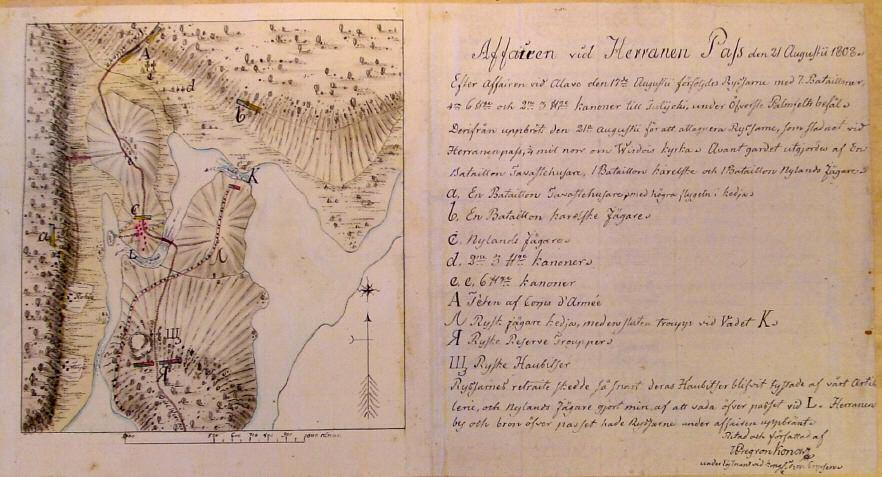 A
e
d
b
K
c
a
L
Л
Ш
Я
Affairen vid Herranen Pass den 21 Augustii 1808.
Efter Affairen vid Alavo den 17de Augustii förföljdes Ryssarne med 7 Batailloner,
och kanoner till under Öfverste Palmfelts befäl.
Derifrån uppbröt den 21de Augustii för att attaquera Ryssarne, som stadnat vid
Herranenpass, mil norr om Wirdois kyrka. Avant gardet utgjordes af En
Bataillon Tavastehusare, 1 Bataillon karelske och 1 Bataillon Nylands Jägare.
a. En Bataillon Tavastehusare, med högra flygeln i kedja.
b. En Bataillon karelske Jägare.
c. Nylands Jägare.
d. kanoner.
e. e. 6 kanoner
A Teten af Corps d'Armée
Л Rysk jägare kedja, med en staten troupp vid Vadet K.
Я Ryske Reserve Troupper.
Ш Ryske Haubitser
Ryssarnes retraite skedde så snart deras Haubitser blifvit tystade af vårt Artil-
lerie, och Nylands Jägare gjort min af att vada öfver passet vid L. Herranen
by och bron öfver passet hade Ryssarne under affairen uppbränt.
Ritad och författad af